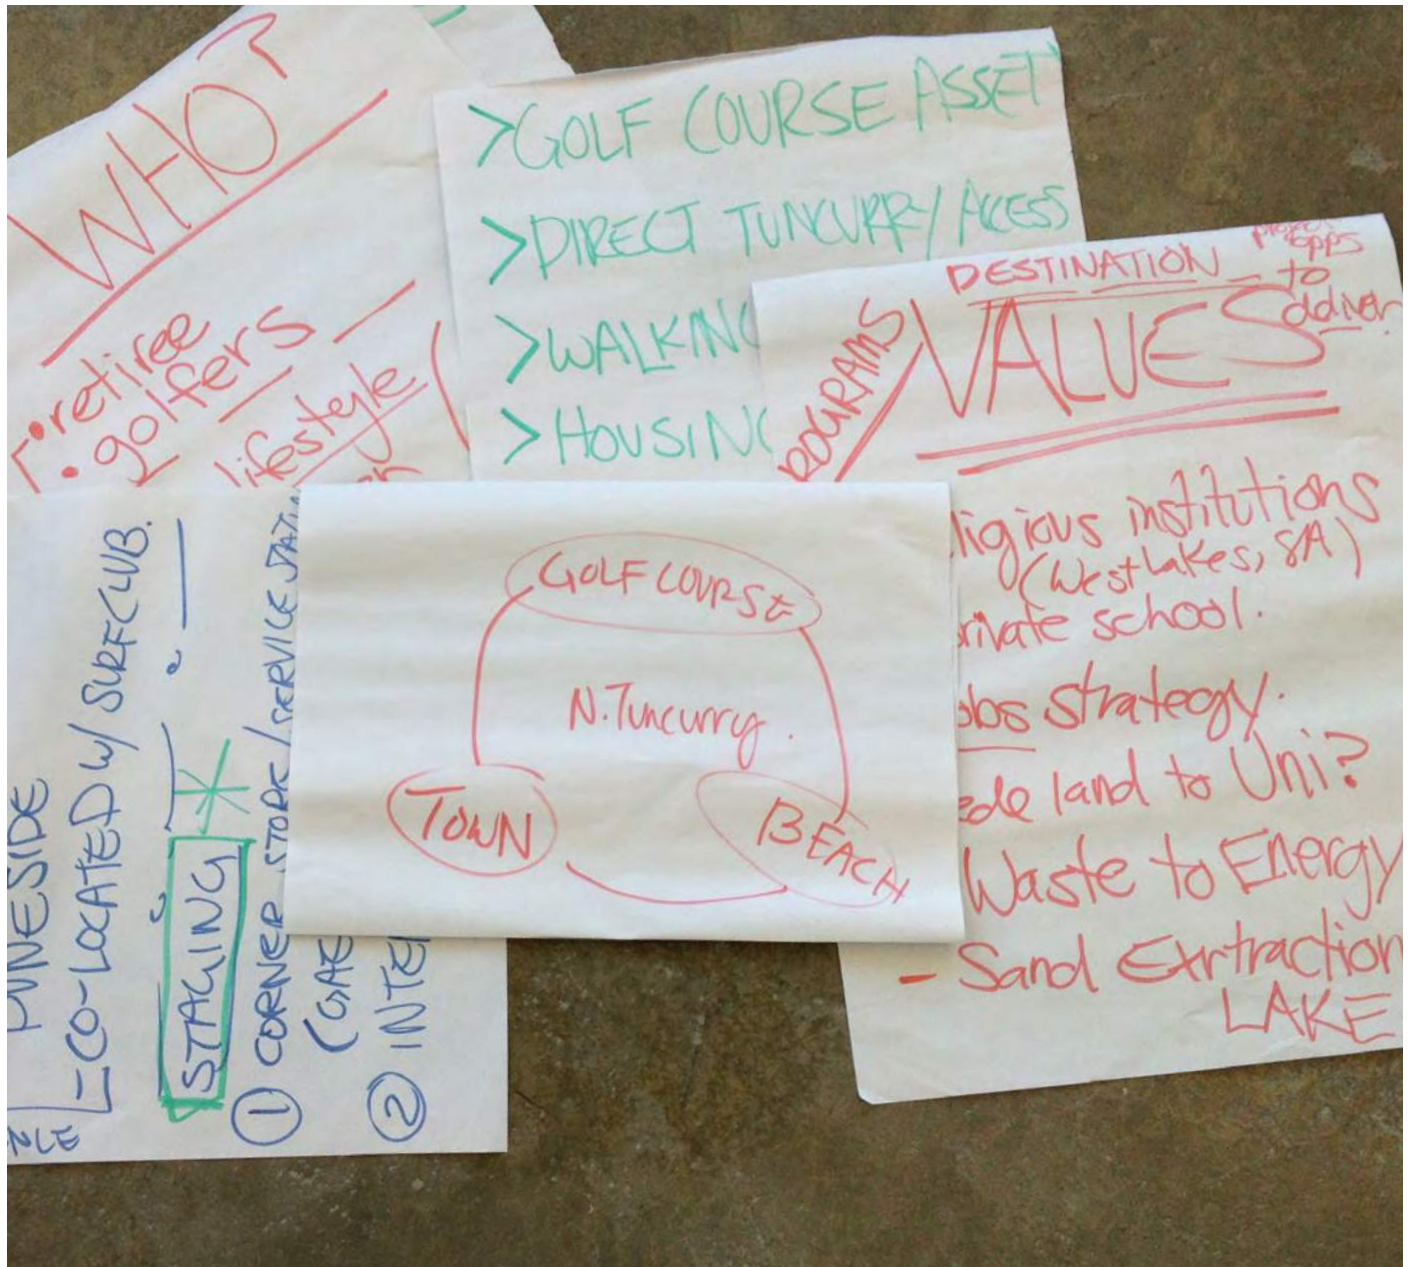 WHO?
• retiree
• golfers
lifestyle
>GOLF COURSE ASSET
>DIRECT TUNCURRY ACCESS
>WALKING
>HOUSING
DESTINATION
opps
to
VALUES
ligious institutions
(West Lakes, SA)
rivate school.
obs strategy.
ede land to Uni?
Waste to Energy
- Sand Exrtraction
LAKE
GOLF COURSE
N.Tuncurry.
TOWN
BEACH
-CO-LOCATED W/ SURFCLUB.
STAGING
① CORNER STORE/SERVICE
②